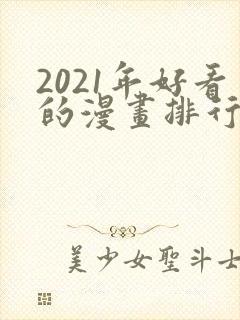 2021年好看
的漫畫排行
美少女聖斗士